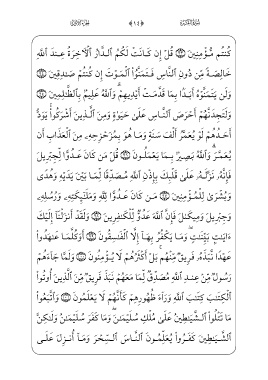 سُورَةُ البَقَرَةِ ١٥ الجُزْءُ الأَوَّلُ
كُنتُم مُّؤْمِنِينَ ٩٣ قُلْ إِن كَانَتْ لَكُمُ ٱلدَّارُ ٱلْأَخِرَةُ عِندَ ٱللَّهِ
خَالِصَةً مِّن دُونِ ٱلنَّاسِ فَتَمَنَّوُا۟ ٱلْمَوْتَ إِن كُنتُمْ صَٰدِقِينَ ٩٤
وَلَن يَتَمَنَّوْهُ أَبَدًۢا بِمَا قَدَّمَتْ أَيْدِيهِمْ وَٱللَّهُ عَلِيمٌۢ بِٱلظَّٰلِمِينَ ٩٥
وَلَتَجِدَنَّهُمْ أَحْرَصَ ٱلنَّاسِ عَلَىٰ حَيَوٰةٍ وَمِنَ ٱلَّذِينَ أَشْرَكُوا۟ يَوَدُّ
أَحَدُهُمْ لَوْ يُعَمَّرُ أَلْفَ سَنَةٍ وَمَا هُوَ بِمُزَحْزِحِهِۦ مِنَ ٱلْعَذَابِ أَن
يُعَمَّرَ وَٱللَّهُ بَصِيرٌۢ بِمَا يَعْمَلُونَ ٩٦ قُلْ مَن كَانَ عَدُوًّا لِّجِبْرِيلَ
فَإِنَّهُۥ نَزَّلَهُۥ عَلَىٰ قَلْبِكَ بِإِذْنِ ٱللَّهِ مُصَدِّقًا لِّمَا بَيْنَ يَدَيْهِ وَهُدًى
وَبُشْرَىٰ لِلْمُؤْمِنِينَ ٩٧ مَن كَانَ عَدُوًّا لِّلَّهِ وَمَلَٰٓئِكَتِهِۦ وَرُسُلِهِۦ
وَجِبْرِيلَ وَمِيكَىٰلَ فَإِنَّ ٱللَّهَ عَدُوٌّ لِّلْكَٰفِرِينَ ٩٨ وَلَقَدْ أَنزَلْنَآ إِلَيْكَ
ءَايَٰتٍۭ بَيِّنَٰتٍ وَمَا يَكْفُرُ بِهَآ إِلَّا ٱلْفَٰسِقُونَ ٩٩ أَوَكُلَّمَا عَٰهَدُوا۟
عَهْدًا نَّبَذَهُۥ فَرِيقٌ مِّنْهُم بَلْ أَكْثَرُهُمْ لَا يُؤْمِنُونَ ١٠٠ وَلَمَّا جَآءَهُمْ
رَسُولٌ مِّنْ عِندِ ٱللَّهِ مُصَدِّقٌ لِّمَا مَعَهُمْ نَبَذَ فَرِيقٌ مِّنَ ٱلَّذِينَ أُوتُوا۟
ٱلْكِتَٰبَ كِتَٰبَ ٱللَّهِ وَرَآءَ ظُهُورِهِمْ كَأَنَّهُمْ لَا يَعْلَمُونَ ١٠١ وَٱتَّبَعُوا۟
مَا تَتْلُوا۟ ٱلشَّيَٰطِينُ عَلَىٰ مُلْكِ سُلَيْمَٰنَ وَمَا كَفَرَ سُلَيْمَٰنُ وَلَٰكِنَّ
ٱلشَّيَٰطِينَ كَفَرُوا۟ يُعَلِّمُونَ ٱلنَّاسَ ٱلسِّحْرَ وَمَآ أُنزِلَ عَلَى